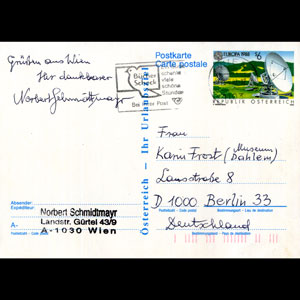 Postkarte
Carte postale
Grüßen aus Wien
Ihr dankbarer
Norbert Schmidtmayr
Bücher
Scheck
schenkt
viele
schöne
Stunden
Bei Ihrer Post
EUROPA 1988
S6
REPUBLIK ÖSTERREICH
Österreich – Ihr Urlaubsziel
Frau
Karin Frost (Museum
Dahlem)
Lansstraße 8
D 1000 Berlin 33
Deutschland
Absender
Expéditeur
Norbert Schmidtmayr
Landstr. Gürtel 43/9
A-1030 Wien
A-
Postleitzahl - Code postal
Bestimmungsort - Lieu de destination
Postleitzahl - Code postal
Bestimmungsort - Lieu de destination
Bestimmungsland - Pays de destination